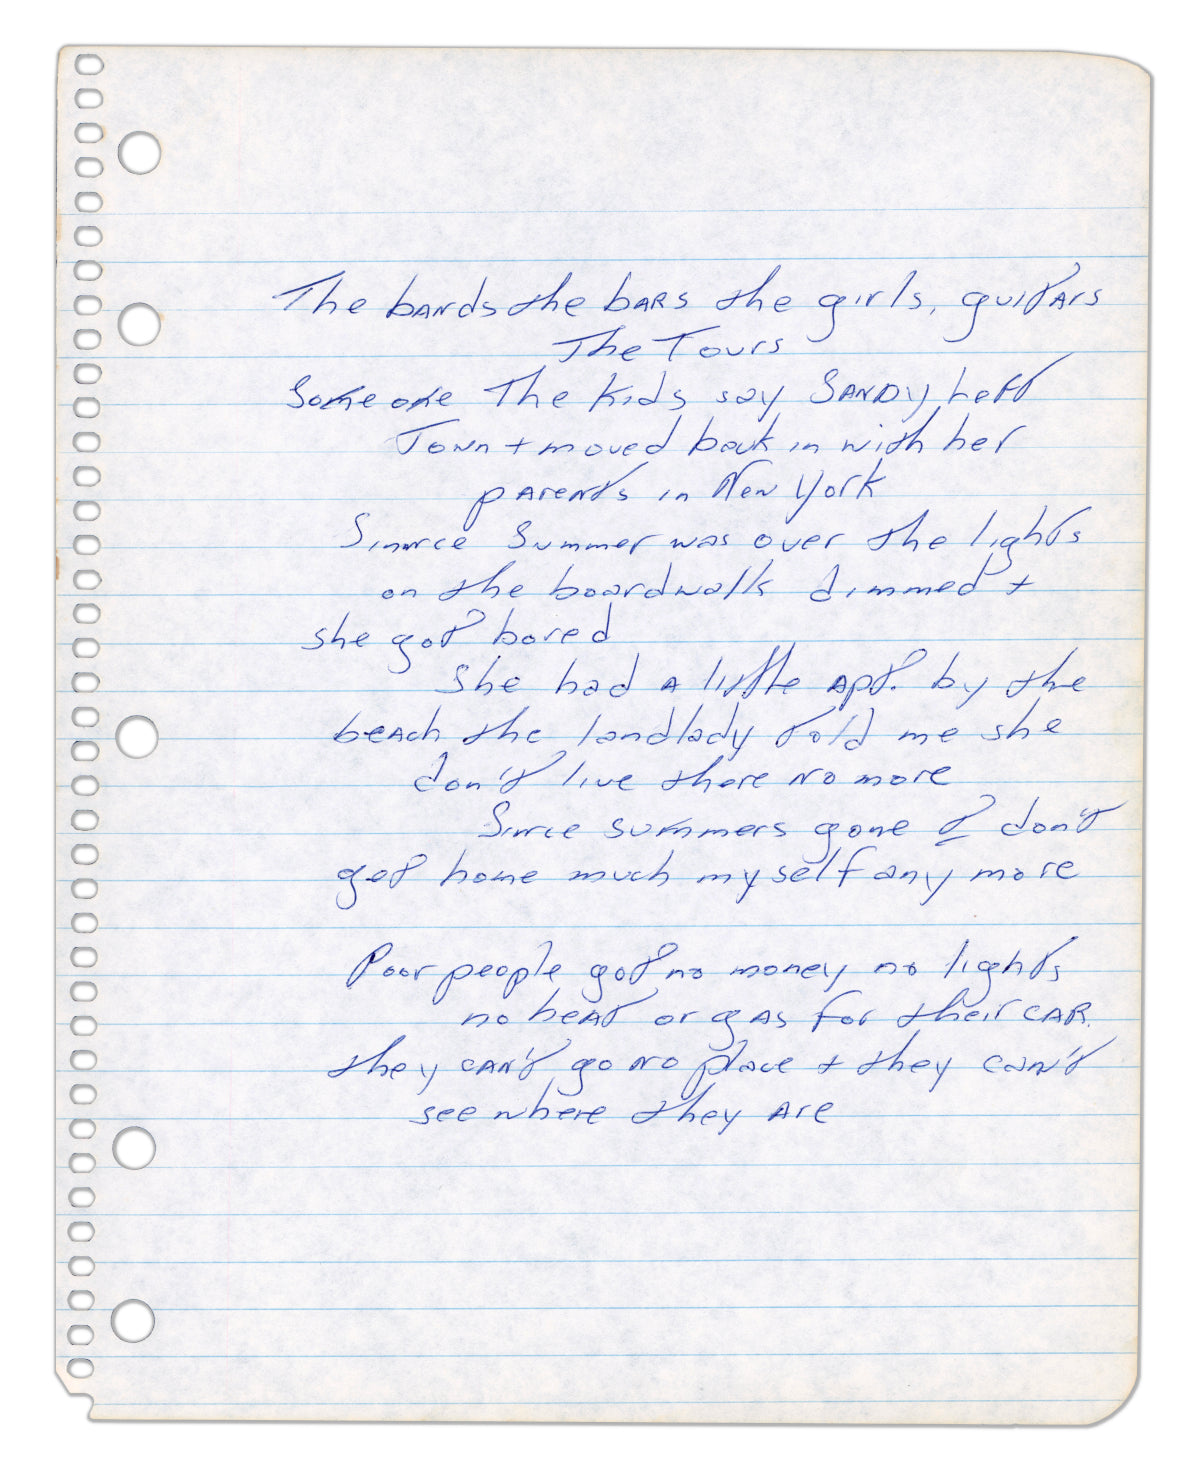 The bands the bars the girls, guitars
The Tours
Someone The kids say SANDY Left
Town + moved back in with her
parents in New York
Sinnce Summer was over the lights
on the boardwalk dimmed +
she got bored
She had a little apt. by the
beach the landlady told me she
don't live there no more
Since summers gone I don't
get home much myself any more
Poor people got no money no lights
no heat or gas for their CAR.
they can't go no place + they can't
see where they are